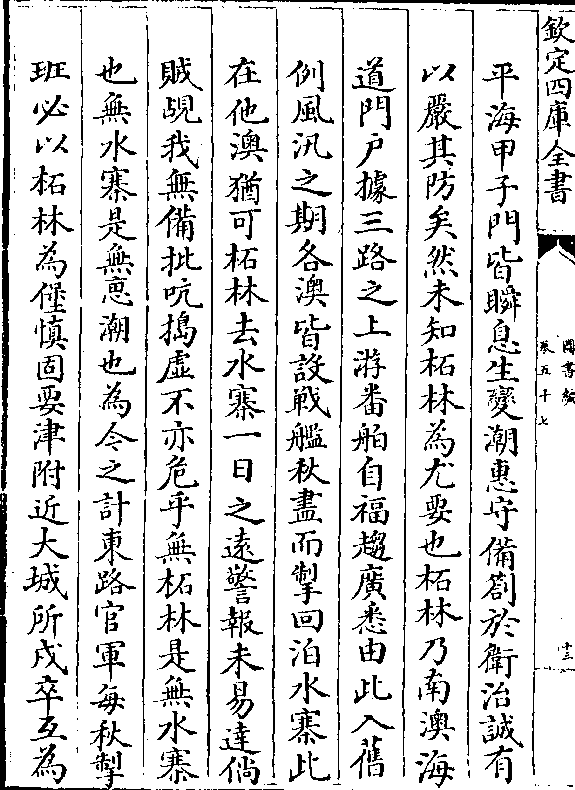 欽定四庫全書
圖書編
卷五十七
十三
平海甲子門皆瞬息生變潮惠守備劄於衛治誠有
以嚴其防矣然未知柘林為尤要也柘林乃南澳海
道門户據三路之上游番舶自福趨廣悉由此入舊
例風汛之期各澳皆設戰艦秋盡而掣回泊水寨此
在他澳猶可柘林去水寨一日之遠警報未易達倘
賊覘我無備批吭搗虛不亦危乎無柘林是無水寨
也無水寨是無惠潮也為今之計東路官軍每秋掣
班必以柘林為堡慎固要津附近大城所戍卒互為